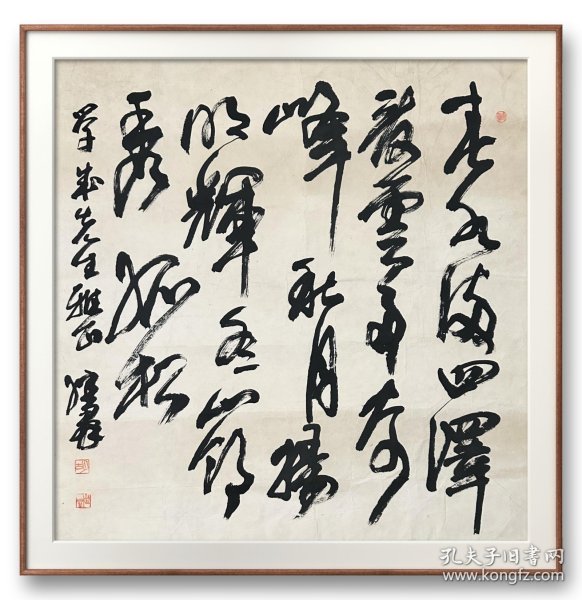 春水满四泽
夏云多奇
峰 秋月扬
明辉 冬岭
秀孤松
学成先生雅正
孔夫子旧书网
www.kongfz.com